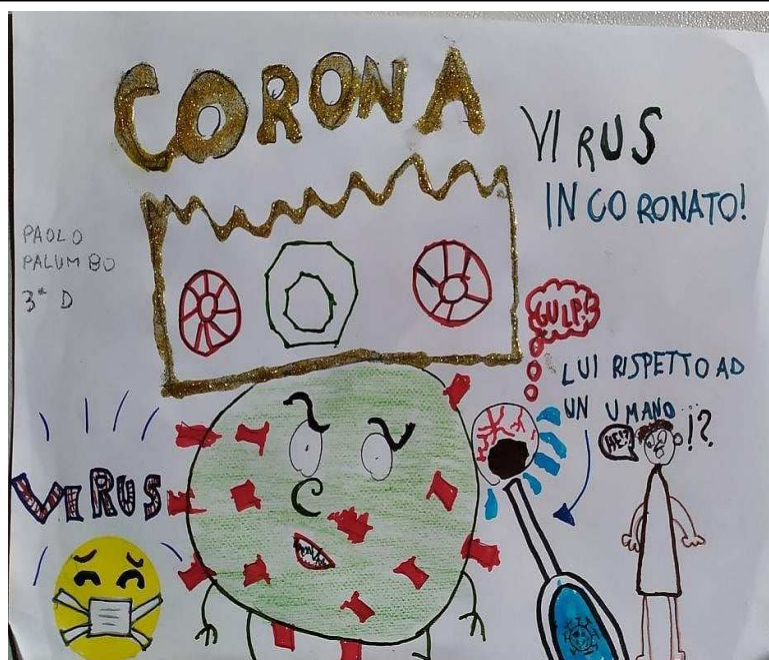 CORONA
VIRUS
INCORONATO!
PAOLO
PALUMBO
3ª D
GULP!
LUI RISPETTO AD
UN UMANO
HE!?
!?
VIRUS